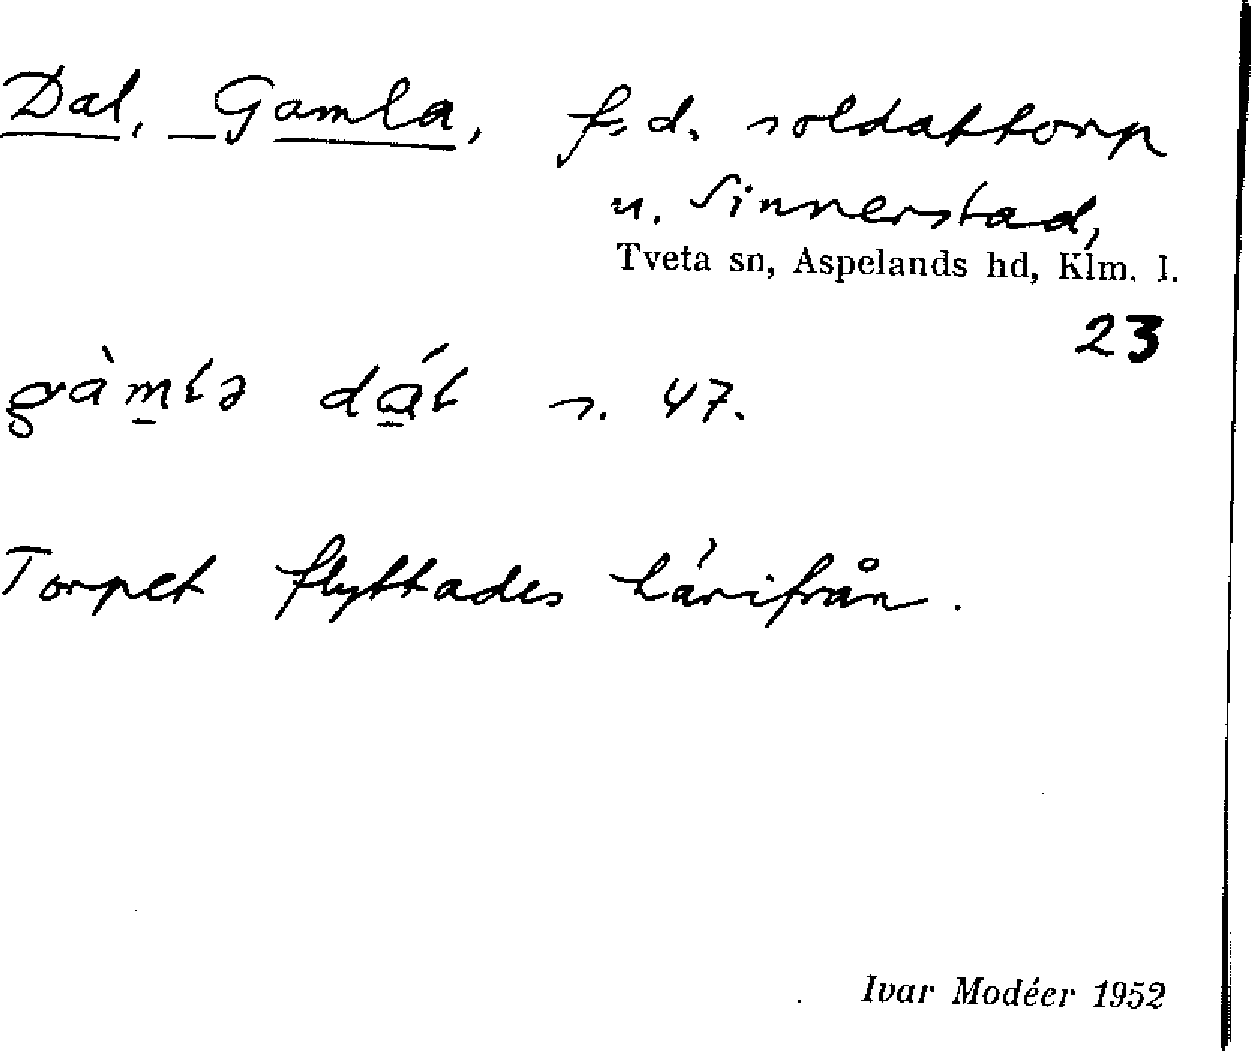 Dal, Gamla, f.d. soldattorp
u. Sinnerstad,
Tveta sn, Aspelands hd, Klm. l.
23
gàm̲lə dá̲l s. 47.
Torpet flyttades härifrån.
Ivar Modéer 1952